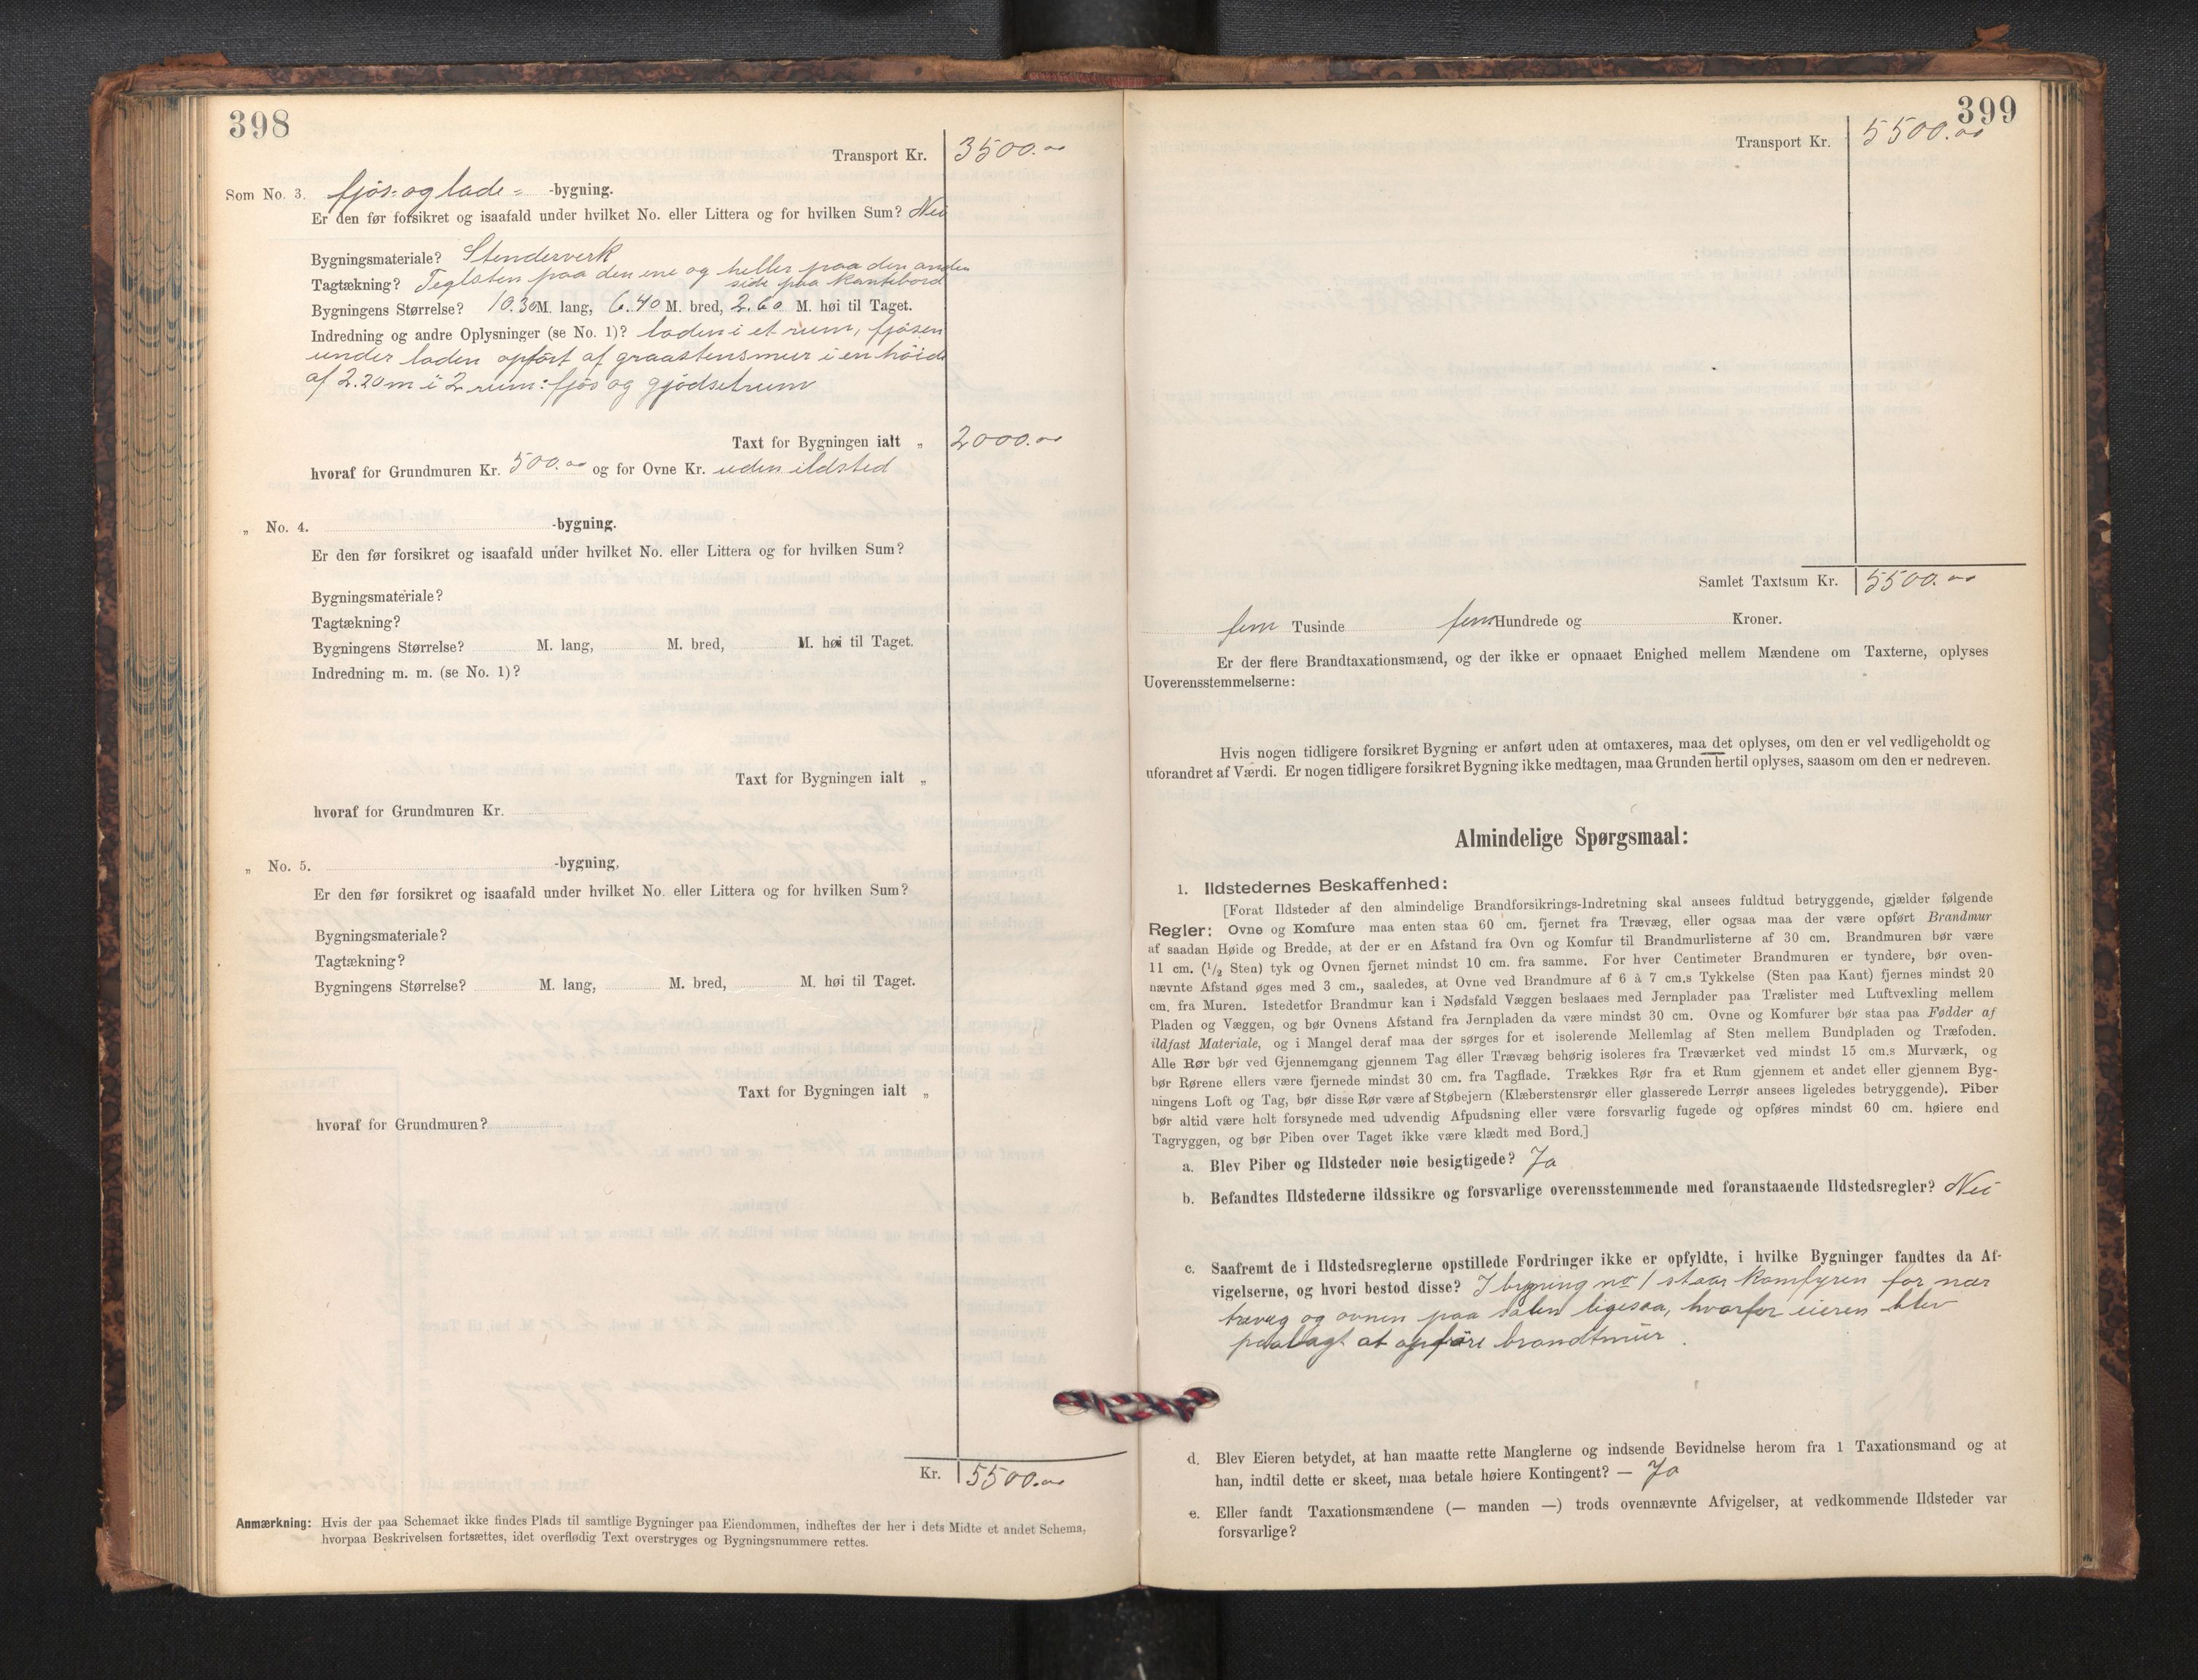 398
Transport Kr. 3500.00
Som No. 3. fjös- og lade- -bygning.
Er den før forsikret og isaafald under hvilket No. eller Littera og for hvilken Sum? Nei
Bygningsmateriale? Stenderverk
Tagtækning? Teglsten paa den ene og heller paa den anden
side paa kantebord
Bygningens Størrelse? 10.30 M. lang, 6.40 M. bred, 2.60 M. høi til Taget.
Indredning og andre Oplysninger (se No. 1)? laden i et rum, fjösen
under laden opfört af graastensmur i en höide
af 2.20 m i 2 rum: fjös og gjödselrum
Taxt for Bygningen ialt „ 2000.00
hvoraf for Grundmuren Kr. 500.00 og for Ovne Kr. uden ildsted
„ No. 4. -bygning.
Er den før forsikret og isaafald under hvilket No. eller Littera og for hvilken Sum?
Bygningsmateriale?
Tagtækning?
Bygningens Størrelse? M. lang, M. bred, M. høi til Taget.
Indredning m. m. (se No. 1)?
Taxt for Bygningen ialt „
hvoraf for Grundmuren Kr.
„ No. 5. -bygning,
Er den før forsikret og isaafald under hvilket No. eller Littera og for hvilken Sum?
Bygningsmateriale?
Tagtækning?
Bygningens Størrelse? M. lang, M. bred, M. høi til Taget.
Taxt for Bygningen ialt „
hvoraf for Grundmuren?
Kr. 5500.00
Anmærkning: Hvis der paa Schemaet ikke findes Plads til samtlige Bygninger paa Eiendommen, indheftes der her i dets Midte et andet Schema,
hvorpaa Beskrivelsen fortsættes, idet overflødig Text overstryges og Bygningsnummere rettes.
399
Transport Kr. 5500.00
Samlet Taxtsum Kr. 5500.00
fem Tusinde fem Hundrede og Kroner.
Er der flere Brandtaxationsmænd, og der ikke er opnaaet Enighed mellem Mændene om Taxterne, oplyses
Uoverensstemmelserne:
Hvis nogen tidligere forsikret Bygning er anført uden at omtaxeres, maa det oplyses, om den er vel vedligeholdt og
uforandret af Værdi. Er nogen tidligere forsikret Bygning ikke medtagen, maa Grunden hertil oplyses, saasom om den er nedreven.
Almindelige Spørgsmaal:
1. Ildstedernes Beskaffenhed:
[Forat Ildsteder af den almindelige Brandforsikrings-Indretning skal ansees fuldtud betryggende, gjælder følgende
Regler: Ovne og Komfure maa enten staa 60 cm. fjernet fra Trævæg, eller ogsaa maa der være opført Brandmur
af saadan Høide og Bredde, at der er en Afstand fra Ovn og Komfur til Brandmurlisterne af 30 cm. Brandmuren bør være
11 cm. (1/2 Sten) tyk og Ovnen fjernet mindst 10 cm. fra samme. For hver Centimeter Brandmuren er tyndere, bør oven-
nævnte Afstand øges med 3 cm., saaledes, at Ovne ved Brandmure af 6 à 7 cm.s Tykkelse (Sten paa Kant) fjernes mindst 20
cm. fra Muren. Istedetfor Brandmur kan i Nødsfald Væggen beslaaes med Jernplader paa Trælister med Luftvexling mellem
Pladen og Væggen, og bør Ovnens Afstand fra Jernpladen da være mindst 30 cm. Ovne og Komfurer bør staa paa Fødder af
ildfast Materiale, og i Mangel deraf maa der sørges for et isolerende Mellemlag af Sten mellem Bundpladen og Træfoden.
Alle Rør bør ved Gjennemgang gjennem Tag eller Trævæg behørig isoleres fra Træværket ved mindst 15 cm.s Murværk, og
bør Rørene ellers være fjernede mindst 30 cm. fra Tagflade. Trækkes Rør fra et Rum gjennem et andet eller gjennem Byg-
ningens Loft og Tag, bør disse Rør være af Støbejern (Klæberstensrør eller glasserede Lerrør ansees ligeledes betryggende). Piber
bør altid være helt forsynede med udvendig Afpudsning eller være forsvarlig fugede og opføres mindst 60 cm. høiere end
Tagryggen, og bør Piben over Taget ikke være klædt med Bord.]
a. Blev Piber og Ildsteder nøie besigtigede? Ja
b. Befandtes Ildstederne ildssikre og forsvarlige overensstemmende med foranstaaende Ildstedsregler? Nei
c. Saafremt de i Ildstedsreglerne opstillede Fordringer ikke er opfyldte, i hvilke Bygninger fandtes da Af-
vigelserne, og hvori bestod disse? I bygning no 1 staar komfyren for nær
trævæg og ovnen paa salen ligesaa, hvorfor eieren blev
paalagt at opföre brandtmür.
d. Blev Eieren betydet, at han maatte rette Manglerne og indsende Bevidnelse herom fra 1 Taxationsmand og at
han, indtil dette er skeet, maa betale høiere Kontingent? — Ja
e. Eller fandt Taxationsmændene (— manden —) trods ovennævnte Afvigelser, at vedkommende Ildsteder var
forsvarlige?